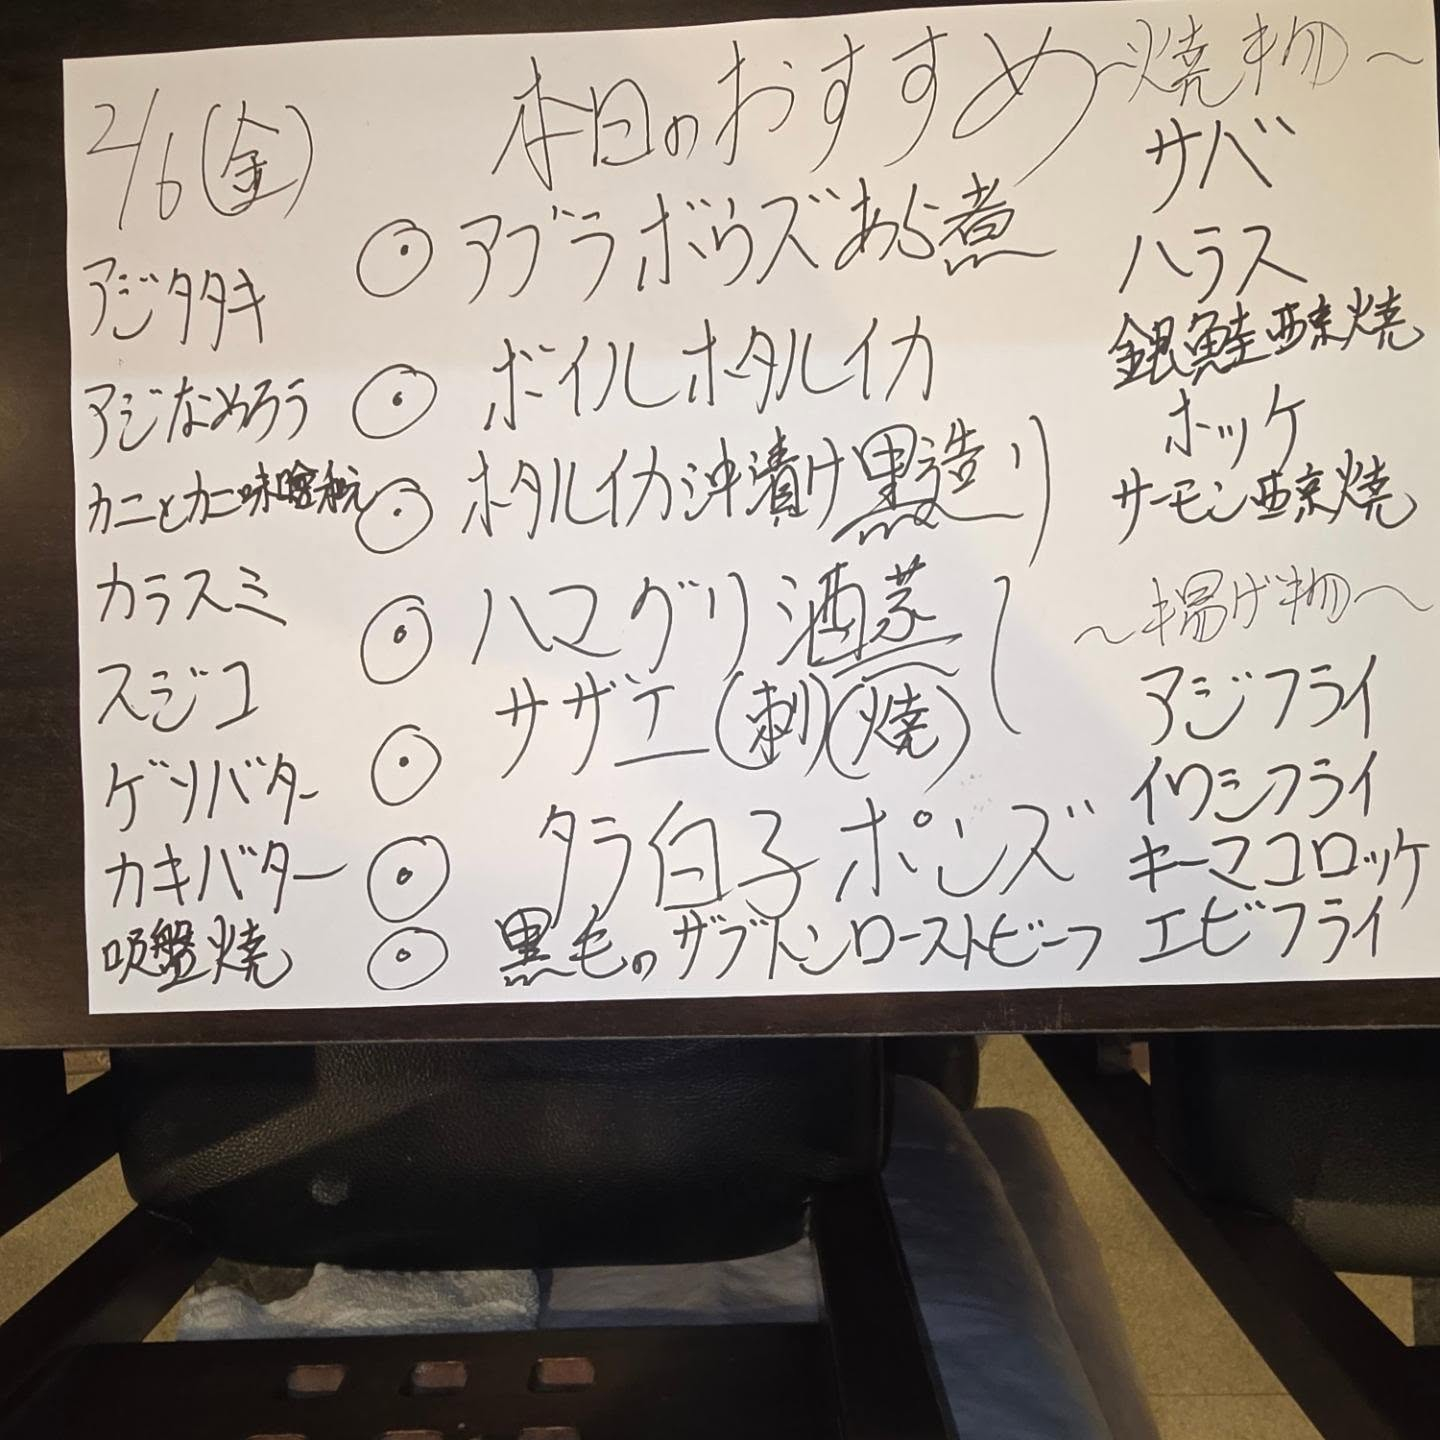 2/6(金)
本日のおすすめ
アジタタキ
アジなめろう
カニとカニ味噌和え
カラスミ
スジコ
ゲソバター
カキバター
吸盤焼
◉ アブラボウズあら煮
◉ ボイルホタルイカ
◉ ホタルイカ沖漬け黒造り
◉ ハマグリ酒蒸し
◉ サザエ(刺)(焼)
◉ タラ白子ポンズ
◉ 黒毛のザブトンローストビーフ
~焼物~
サバ
ハラス
銀鮭西京焼
ホッケ
サーモン西京焼
~揚げ物~
アジフライ
イワシフライ
キーマコロッケ
エビフライ